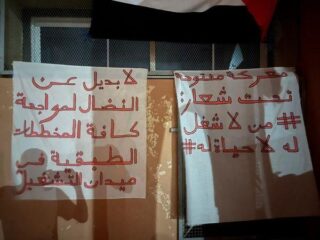 لا بديل عن
النضال لمواجهة
كافة المخططات
الطبقية في
ميدان التشغيل
معركة مفتوحة
تحت شعار
## من لا شغل
له لا حياة له#